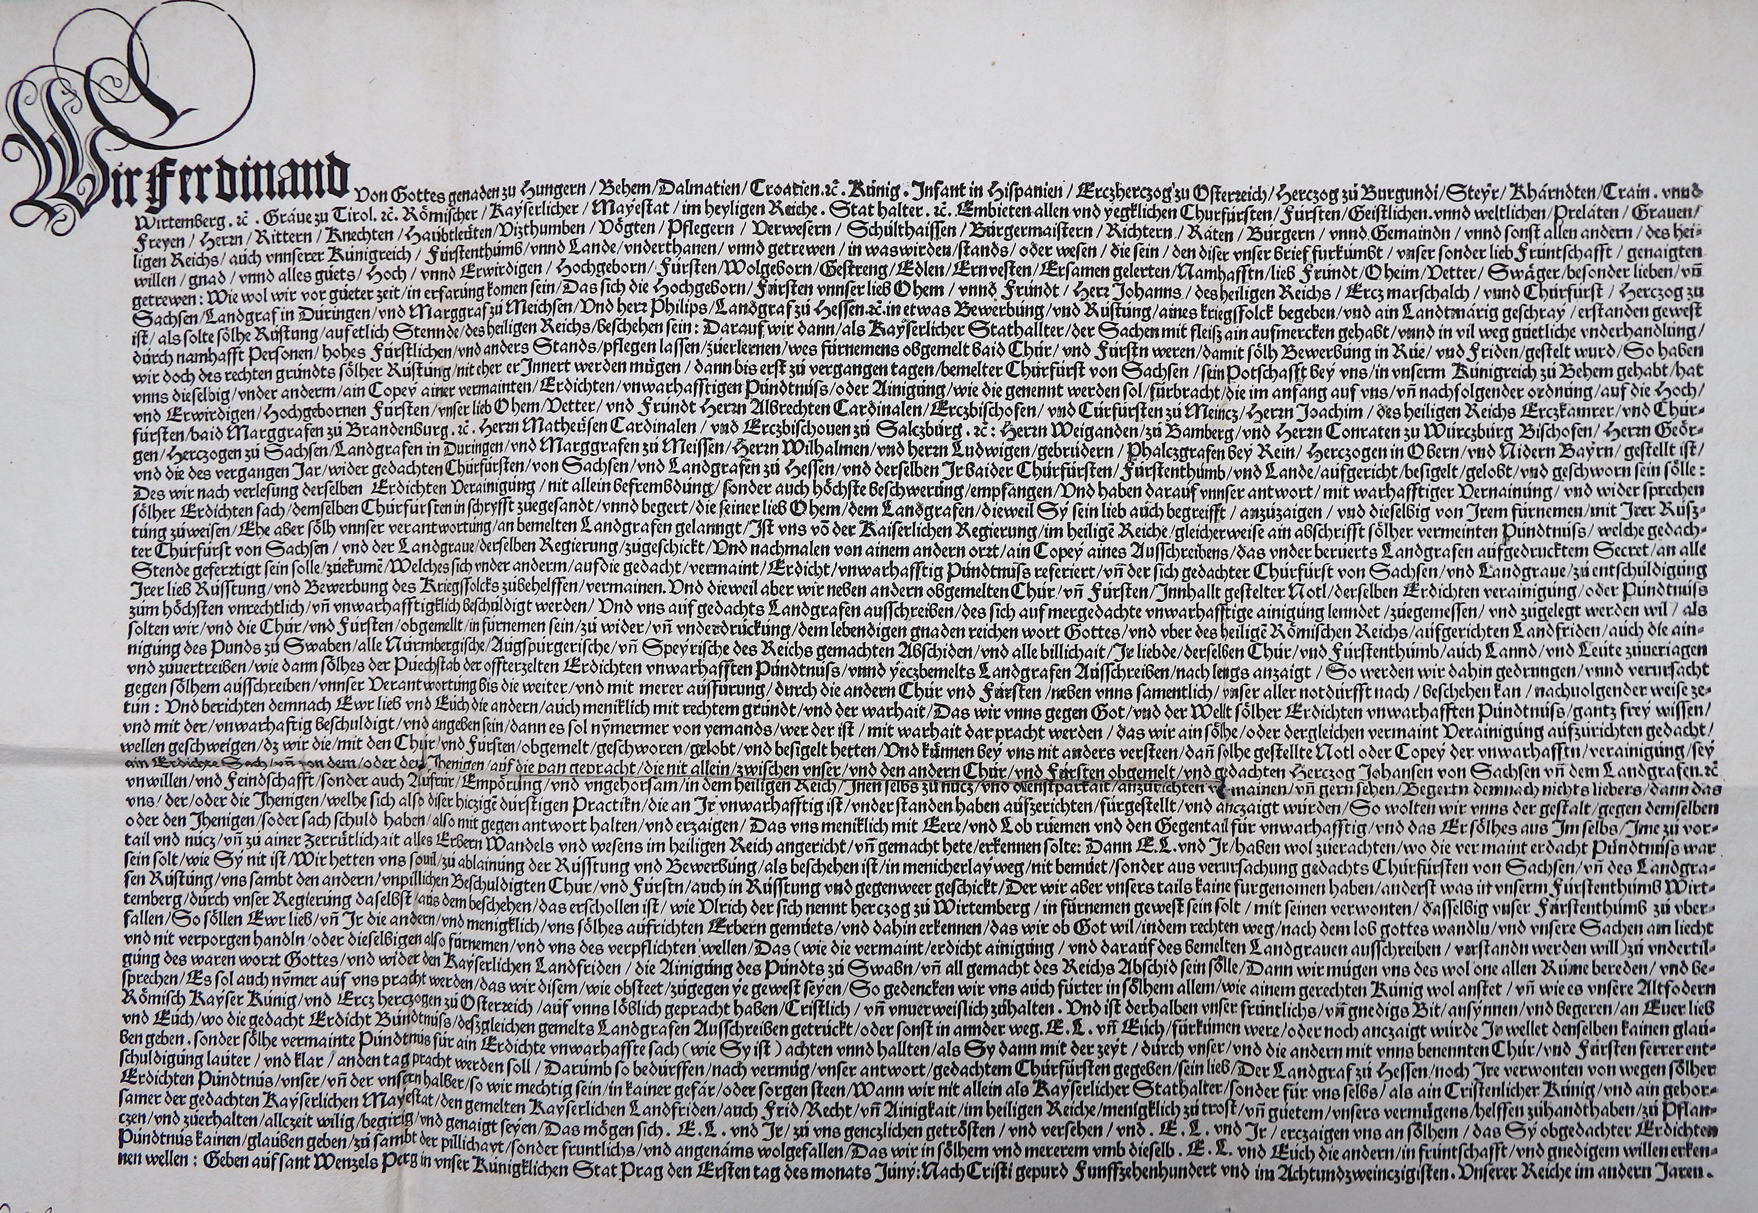 Wir Ferdinand Von Gottes genaden zu Hungern / Behem / Dalmatien / Croatien. ꝛc̄. Künig. Infant in Hispanien / Erczherczog zu Osterreich / Herczog zu Burgundi / Steyr / Kharndten / Crain. vnnd
Wirtemberg. ꝛc̄. Graue zu Tirol. ꝛc̄. Römischer / Kayserlicher / Mayestat / im heyligen Reiche. Stat halter. ꝛc̄. Embieten allen vnd yegklichen Churfürsten / Fürsten / Geistlichen. vnnd weltlichen / Prelaten / Grauen /
Freyen / Herrn / Rittern / Knechten / Haubtleuten / Vizthumben / Vögten / Pflegern / Verwesern / Schulthaissen / Burgermaistern / Richtern / Räten / Burgern / vnnd Gemaindn / vnnd sonst allen andern / des hei-
ligen Reichs / auch vnnserer Künigreich / Fürstenthumb / vnnd Lande / vnderthanen / vnnd getrewen / in was wirden / stands / oder wesen / die sein / den diser vnser brief furkumbt / vnser sonder lieb Fruntschafft / genaigten
willen / gnad / vnnd alles guets / Hoch / vnnd Erwirdigen / Hochgeborn / Fürsten / Wolgeborn / Gestreng / Edlen / Ernvesten / Ersamen gelerten / Namhafftn / lieb Fründt / Oheim / Vetter / Swäger / besonder lieben / vn̄
getrewen : Wie wol wir vor gueter zeit / in erfarung komen sein / Das sich die Hochgeborn / Fürsten vnnser lieb Ohem / vnnd Fründt / Herr Johanns / des heiligen Reichs / Ercz marschalch / vnnd Churfürst / Herczog zu
Sachsen / Landgraf in Düringen / vnd Marggraf zu Meichsen / Vnd herr Philips / Landgraf zu Hessen. ꝛc̄. in etwas Bewerbung / vnd Rüstung / aines kriegsfolck begeben / vnd ain Landtmärig geschray / erstanden gewest
ist / als solte sölhe Rüstung / auf etlich Stennde / des heiligen Reichs / beschehen sein : Darauf wir dann / als Kayserlicher Stathallter / der Sachen mit fleiß ain aufmercken gehabt / vnnd in vil weg güetliche vnderhandlung /
durch namhafft Personen / hohes Fürstlichen / vnd anders Stands / pflegen lassen / zuerlernen / wes fürnemens obgemelt baid Chur / vnd Fürstn weren / damit sölh Bewerbung in Rüe / vnd Friden / gestelt wurd / So haben
wir doch des rechten grundts sölher Rüstung / nit eher er Innert werden mügen / dann bis erst zu vergangen tagen / bemelter Churfürst von Sachsen / sein Potschafft bey vns / in vnserm Künigreich zu Behem gehabt / hat
vnns dieselbig / vnder anderm / ain Copey ainer vermainten / Erdichten / vnwarhafftigen Pündtnüss / oder Ainigung / wie die genennt werden sol / fürbracht / die im anfang auf vns / vn̄ nachfolgender ordnung / auf die Hoch /
vnd Erwirdigen / Hochgebornen Fürsten / vnser lieb Ohem / Vetter / vnd Fründt Herrn Albrechten Cardinalen / Erczbischofen / vnd Curfürsten zu Meincz / Herrn Joachim / des heiligen Reichs Erczkamrer / vnd Chur-
fürsten / baid Marggrafen zu Brandenburg. ꝛc̄. Herrn Matheusen Cardinalen / vnd Erczbischouen zu Salczburg. ꝛc̄ : Herrn Weiganden / zu Bamberg / vnd Herrn Conraten zu Würczburg Bischofen / Herrn Geör-
gen / Herczogen zu Sachsen / Landgrafen in Düringen / vnd Marggrafen zu Meissen / Herrn Wilhalmen / vnd herrn Ludwigen / gebrüdern / Phalczgrafen bey Rein / Herczogen in Obern / vnd Nidern Bayrn / gestellt ist /
vnd die des vergangen Jar / wider gedachten Churfürsten / von Sachsen / vnd Landgrafen zu Hessen / vnd derselben Ir baider Churfürsten / Fürstenthumb / vnd Lande / aufgericht / besigelt / gelobt / vnd geschworn sein sölle :
Des wir nach verlesung derselben Erdichten Verainigung / nit allein befrembdung / sonder auch höchste beschwerung / empfangen / Vnd haben darauf vnnser antwort / mit warhafftiger Vernainung / vnd wider sprechen
sölher Erdichten sach / demselben Churfürsten in schryfft zuegesandt / vnnd begert / die seiner lieb Ohem / dem Landgrafen / dieweil Sy sein lieb auch begreifft / anzuzaigen / vnd dieselbig von Irem fürnemen / mit Irer Rüss-
tung zu weisen / Ehe aber sölh vnnser verantwortung / an bemelten Landgrafen gelanngt / Ist vns vō der Kaiserlichen Regierung / im heilige Reiche / gleicherweise ain abschrifft sölher vermeinten Pündtnuss / welche gedach-
ter Churfürst von Sachsen / vnd der Landgraue / derselben Regierung / zugeschickt / Vnd nachmalen von ainem andern orrt / ain Copey aines Ausschreibens / das vnder beruerts Landgrafen aufgedrucktem Secret / an alle
Stende gefertzigt sein solle / zuekume / Welches sich vnder anderm / auf die gedacht / vermaint / Erdicht / vnwarhafftig Pündtnuss referiert / vn̄ der sich gedachter Churfürst von Sachsen / vnd Landgraue / zu entschuldigung
Irer lieb Rüsstung / vnd Bewerbung des Kriegsfolcks zubehelffen / vermainen. Vnd dieweil aber wir neben andern obgemelten Chur / vn̄ Fürsten / Innhallt gestelter Notl / derselben Erdichten verainigung / oder Pündtnuss
zum höchsten vnrechtlich / vn̄ vnwarhafftigklich beschuldigt werden / Vnd vns auf gedachts Landgrafen ausschreiben / des sich auf mergedachte vnwarhafftige ainigung lenndet / zuegemessen / vnd zugelegt werden wil / als
solten wir / vnd die Chur / vnd Fürsten / obgemellt / in fürnemen sein / zu wider / vn̄ vnderdruckung / dem lebendigen gnaden reichen wort Gottes / vnd vber des heiligē Römischen Reichs / aufgerichten Landfriden / auch die ain-
nigung des Punds zu Swaben / alle Nürmbergische / Augspurgerische / vn̄ Speyrische des Reichs gemachten Abschiden / vnd alle billichait / Je liebde / derselben Chur / vnd Fürstenthumb / auch Lannd / vnd Leute zuueriagen
vnd zuuertreiben / wie dann sölhes der Puechstab der offterzelten Erdichten vnwarhafften Pündtnuss / vnnd yeczbemelts Landgrafen Ausschreiben / nach lengs anzaigt / So werden wir dahin gedrungen / vnnd verursacht
gegen sölhem ausschreiben / vnnser Verantwortung bis die weiter / vnd mit merer ausfürung / durch die andern Chur vnd Fürsten / neben vnns samentlich / vnser aller notdurfft nach / beschehen kan / nachuolgender weise ze-
tun : Vnd berichten demnach Ewr lieb vnd Euch die andern / auch meniklich mit rechtem gründt / vnd der warhait / Das wir vnns gegen Got / vnd der Wellt sölher Erdichten vnwarhafften Pündtnuss / gantz frey wissen /
vnd mit der / vnwarhaftig beschuldigt / vnd angeben sein / dann es sol nymermer von yemands / wer der ist / mit warhait dar pracht werden / das wir ain sölhe / oder dergleichen vermaint Verainigung aufzurichten gedacht /
wellen geschweigen / dz wir die / mit den Chur / vnd Fürsten / obgemelt / geschworen / gelobt / vnd besigelt hetten / Vnd kunnen bey vns nit anders versteen / dan̄ solhe gestellte Notl oder Copey der vnwarhafftn / verainigung / sey
ain Erdichte Sach / vn̄ von dem / oder den Jhenigen / auf die pan gepracht / die nit allein / zwischen vnser / vnd den andern Chur / vnd Fürsten obgemelt / vnd gedachten Herczog Johansen von Sachsen vn̄ dem Landgrafen. ꝛc̄
vnwillen / vnd Feindschafft / sonder auch Aufrur / Empörung / vnd vngehorsam / in dem heiligen Reich / Jnen selbs zu nucz / vnd dienstparkait / anzurichten vermainen / vn̄ gern sehen / Begertn demnach nichts liebers / dann das
vns / der / oder die Jhenigen / welhe sich also diser hiczige dürstigen Practikn / die an Ir vnwarhafftig ist / vnderstanden haben aufzerichten / fürgestellt / vnd anczaigt wurden / So wolten wir vnns der gestalt / gegen demselben
oder den Jhenigen / so der sach schuld haben / also mit gegen antwort halten / vnd erzaigen / Das vns meniklich mit Eere / vnd Lob rüemen vnd den Gegentail für vnwarhafftig / vnd das Er sölhes aus Im selbs / Ime zu vor-
tail vnd nucz / vn̄ zu ainer Zerrütlichait alles Erbern Wandels vnd wesens im heiligen Reich angericht / vn̄ gemacht hete / erkennen solte : Dann E. L. vnd Ir / haben wol zuerachten / wo die vermaint erdacht Pündtnuss war
sein solt / wie Sy nit ist / Wir hetten vns souil / zu ablainung der Rüsstung vnd Bewerbung / als beschehen ist / in menicherlay weg / nit bemüet / sonder aus verursachung gedachts Churfürsten von Sachsen / vn̄ des Landgra-
fen Rüstung / vns sambt den andern / vnpillichen Beschuldigten Chur / vnd Fürstn / auch in Rüsstung vnd gegenweer geschickt / Der wir aber vnsers tails kaine furgenomen haben / anderst was in vnserm Fürstenthumb Wirt-
temberg / durch vnser Regierung daselbst / aus dem beschehen / das erschollen ist / wie Vlrich der sich nennt herczog zu Wirtemberg / in fürnemen gewest sein solt / mit seinen verwonten / dasselbig vnser Fürstenthumb zu vber-
fallen / So söllen Ewr lieb / vn̄ Ir die andern / vnd menigklich / vns sölhes aufrichten Erbern gemüets / vnd dahin erkennen / das wir ob Got wil / in dem rechten weg / nach dem lob gottes wandlu / vnd vnsere Sachen am liecht
vnd nit verporgen handln / oder dieselbigen also fürnemen / vnd vns des verpflichten wellen / Das (wie die vermaint / erdicht ainigung / vnd darauf des bemelten Landgrauen ausschreiben / verstandn werden will) zu vndertil-
gung des waren worzt Gottes / vnd wider den Kayserlichen Landfriden / die Ainigung des Pündts zu Swabn / vn̄ all gemacht des Reichs Abschid sein sölle / Dann wir mügen vns des wol one allen Rüme bereden / vnd be-
sprechen / Es sol auch nymer auf vns pracht werden / das wir disem / wie obsteet / zugegen ye gewest seyen / So gedencken wir vns auch fürter in sölhem allem / wie ainem gerechten Künig wol anstet / vn̄ wie es vnsere Altfodern
Römisch Kayser Künig / vnd Ercz herczogen zu Osterreich / auf vnns löblich gepracht haben / Cristlich / vn̄ vnuerweislich zuhalten. Vnd ist derhalben vnser früntlichs / vn̄ gnedigs Bit / ansynnen / vnd begeren / an Euer lieb
vnd Euch / wo die gedacht Erdicht Bündtnuss / deszgleichen gemelts Landgrafen Ausschreiben getruckt / oder sonst in annder weg. E. L. vn̄ Euch / fürkumen were / oder noch anczaigt wurde Ir wellet denselben kainen glau-
ben geben. sonder sölhe vermainte Pündtnus für ain Erdichte vnwarhaffte sach (wie Sy ist) achten vnnd hallten / als Sy dann mit der zeyt / durch vnser / vnd die andern mit vnns benennten Chur / vnd Fürsten ferrer ent-
schuldigung lauter / vnd klar / an den tag pracht werden soll / Darumb so bedurffen / nach vermüg / vnser antwort / gedachtem Churfürsten gegeben / sein lieb / Der Landgraf zu Hessen / noch Ire verwonten von wegen sölher
Erdichten Pündtnus / vnser / vn̄ der vnsern halber / so wir mechtig sein / in kainer gefar / oder sorgen steen / Wann wir nit allein als Kayserlicher Stathalter / sonder für vns selbs / als ain Cristenlicher Künig / vnd ain gehor-
samer der gedachten Kayserlichen Mayestat / den gemelten Kayserlichen Landfriden / auch Frid / Recht / vn̄ Ainigkait / im heiligen Reiche / menigklich zu trost / vn̄ guetem / vnsers vermügens / helffen zuhandthaben / zu Pflan-
czen / vnd zuerhalten / allczeit wilig / begirig / vnd genaigt seyen / Das mögen sich. E. L. vnd Ir / zu vns genczlichen getrösten / vnd versehen / vnd. E. L. vnd Ir / erczaigen vns an sölhem / das Sy obgedachter Erdichten
Pündtnus kainen / glauben geben / zu sambt der pillichayt / sonder fruntlichs / vnd angenäms wolgefallen / Das wir in sölhem vnd mererem vmb dieselb. E. L. vnd Euch die andern / in fruntschafft / vnd gnedigem willen erken-
nen wellen : Geben auf sant Wenzels Perg in vnser Künigklichen Stat Prag den Ersten tag des monats Juny : Nach Cristi gepurd Funffzehenhundert vnd im Achtundzweinczigisten. Vnserer Reiche im andern Jaren.